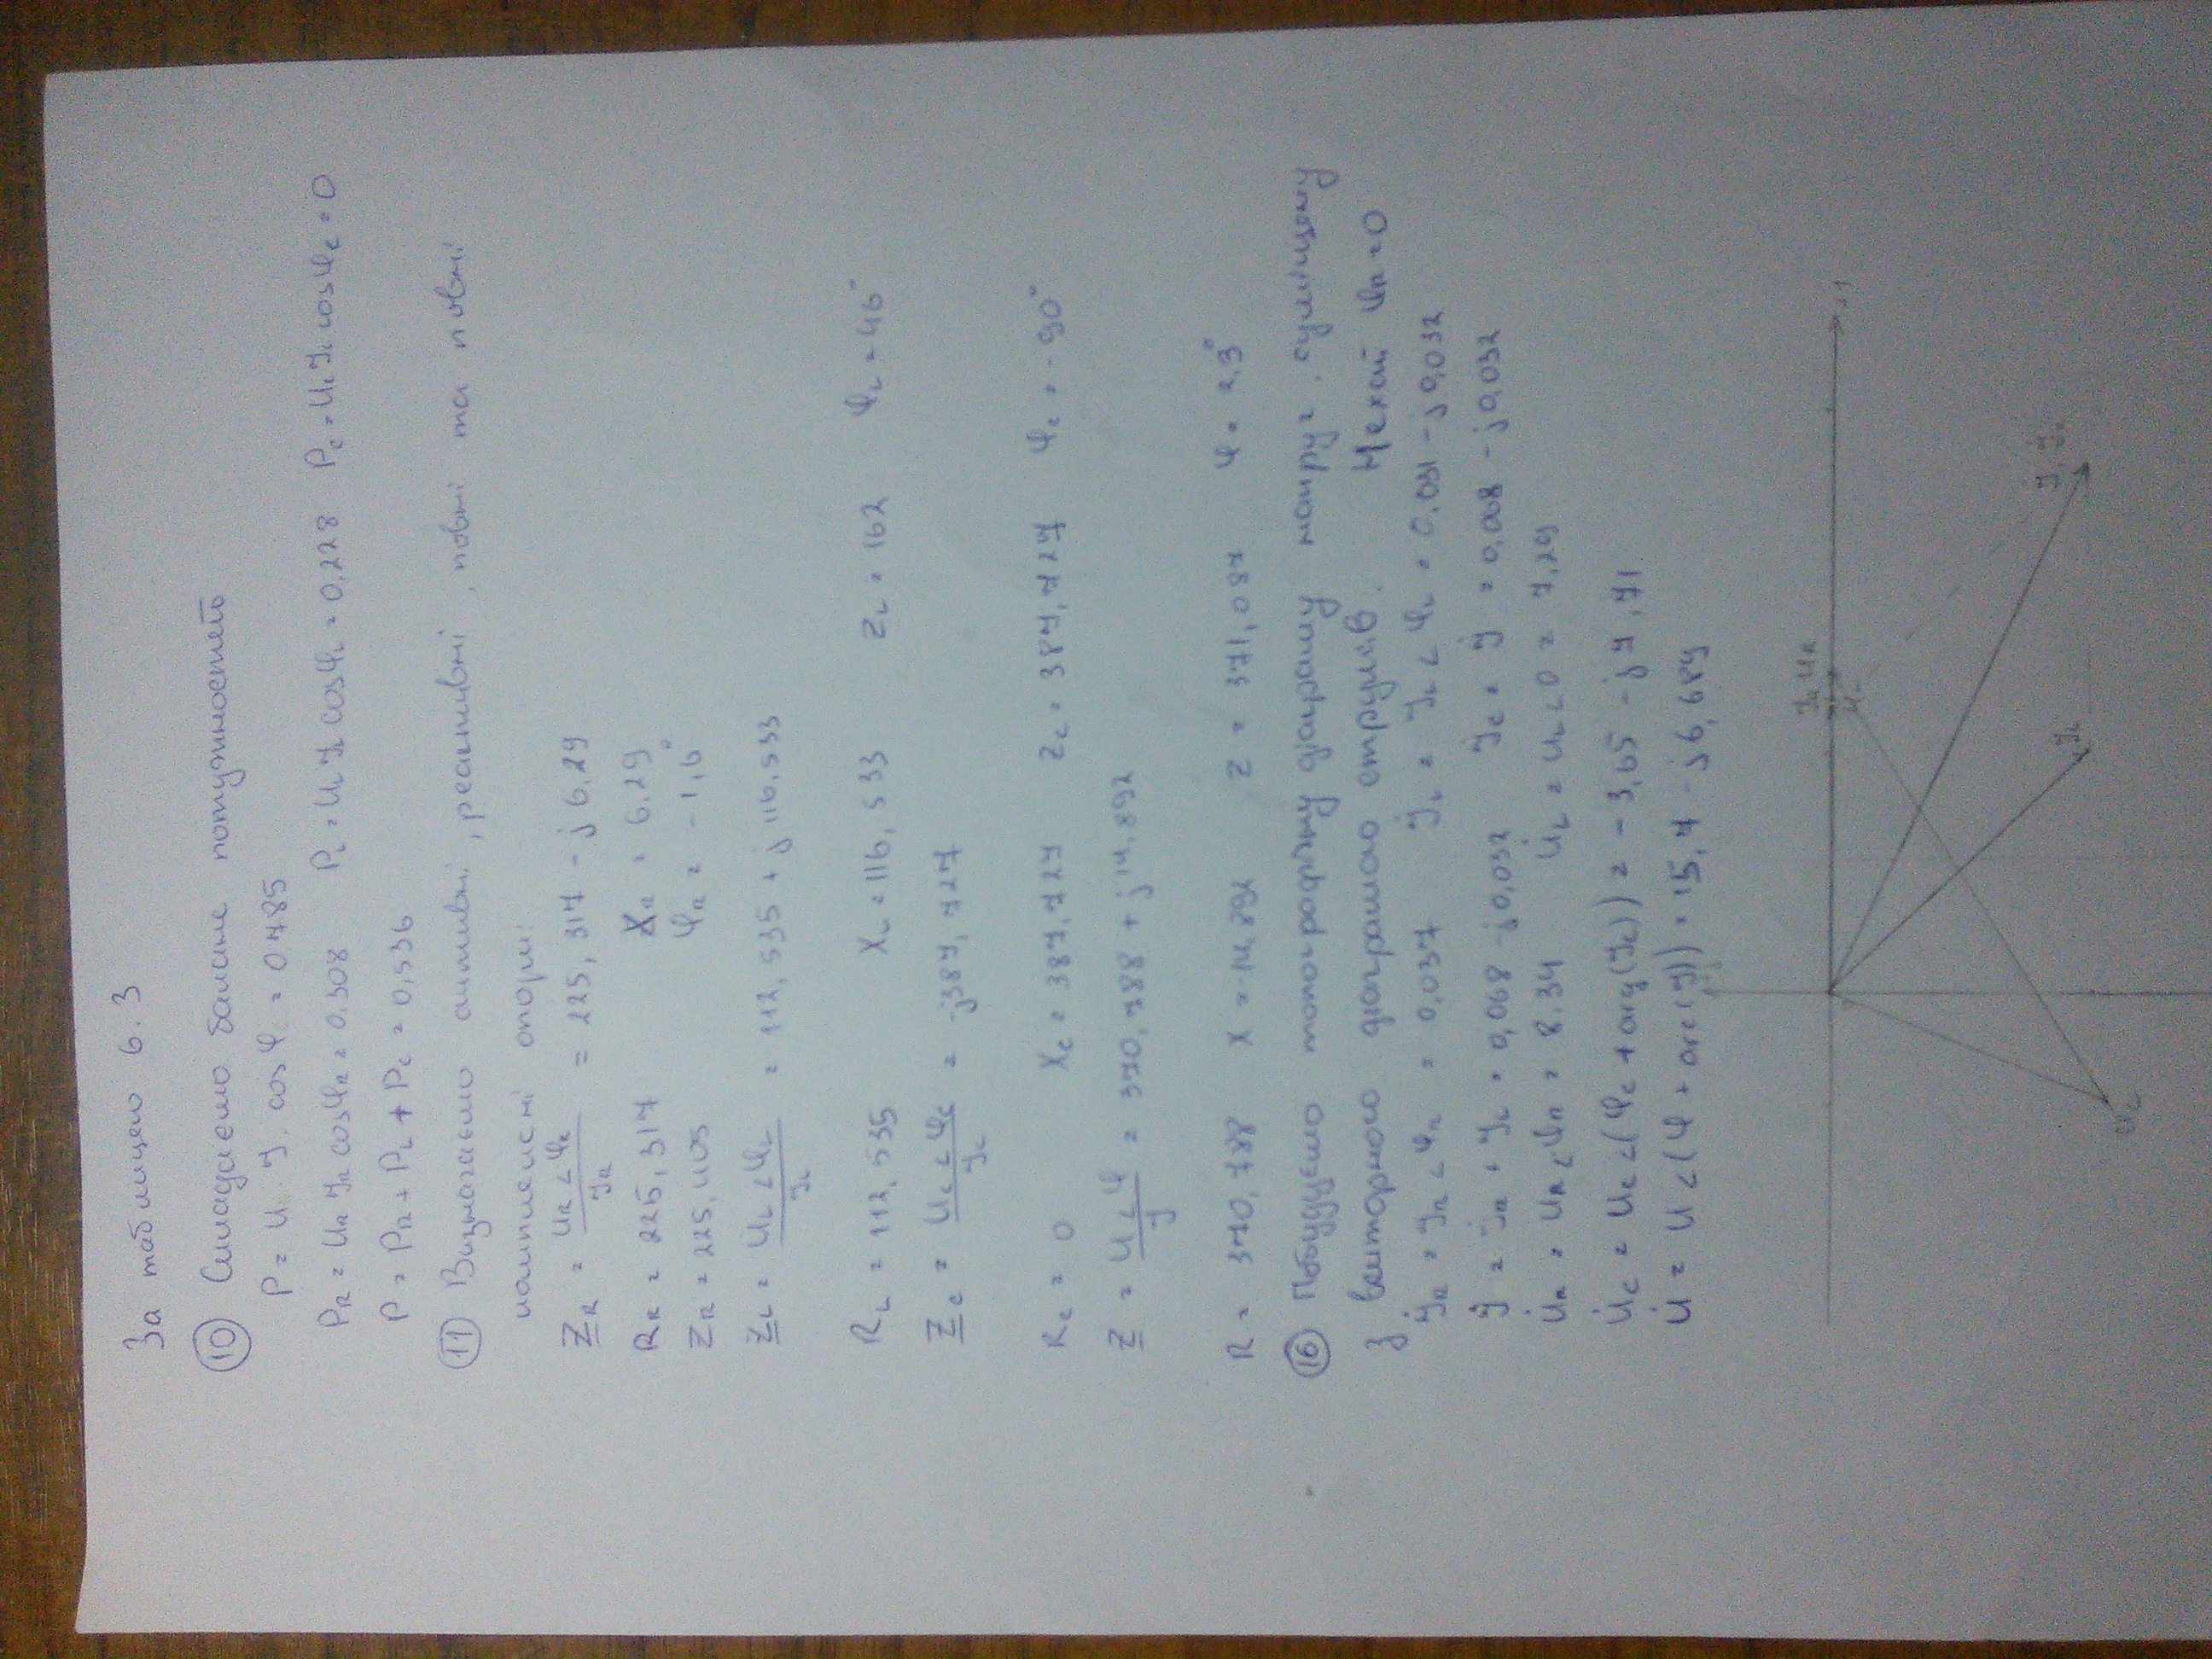 За таблицею 6.3
(10) Складаємо баланс потужностей
P = U · I · cosφ = 0.485
P_R = U_R I_R cosφ_R = 0.308 P_L = U_L I_L cosφ_L = 0.228 P_C = U_C I_C cosφ_C = 0
P = P_R + P_L + P_C = 0,536
(11) Визначаємо активні, реактивні, повні та повні
комплексні опори:
Z_R = U_R∠φ_R / I_R = 225,317 - j 6,29
R_R = 225,317 X_R = 6.29
Z_R = 225,405 φ_R = -1,6°
Z_L = U_L∠φ_L / I_L = 112,535 + j 116,533
R_L = 112,535 X_L = 116,533 Z_L = 162 φ_L = 46°
Z_C = U_C∠φ_C / I_C = -j387,727
R_C = 0 X_C = 387,727 Z_C = 387,727 φ_C = -90°
Z = U∠φ / I = 370,788 + j14,892
R = 370,788 X = 14,892 Z = 371,087 φ = 2,3°
(16) Побудуємо топографічну діаграму напруг, суміщену
з векторною діаграмою струмів. Нехай ψ_R = 0
İ_R = I_R∠φ_R = 0,037 İ_L = I_L∠φ_L = 0,031 - j0,032
İ = İ_R + I_L = 0,068 - j0,032 İ_C = İ = 0,068 - j0,032
U̇_R = U_R∠ψ_R = 8.34 U̇_L = U_L∠0 = 7,29
U̇_C = U_C∠(φ_C + arg(I_C)) = -3,65 - j 7,71
U̇ = U∠(φ + arg(I)) = 15,4 - j6,684
+1
I_R U_R
U_L
I, I_C
I_L
U_C